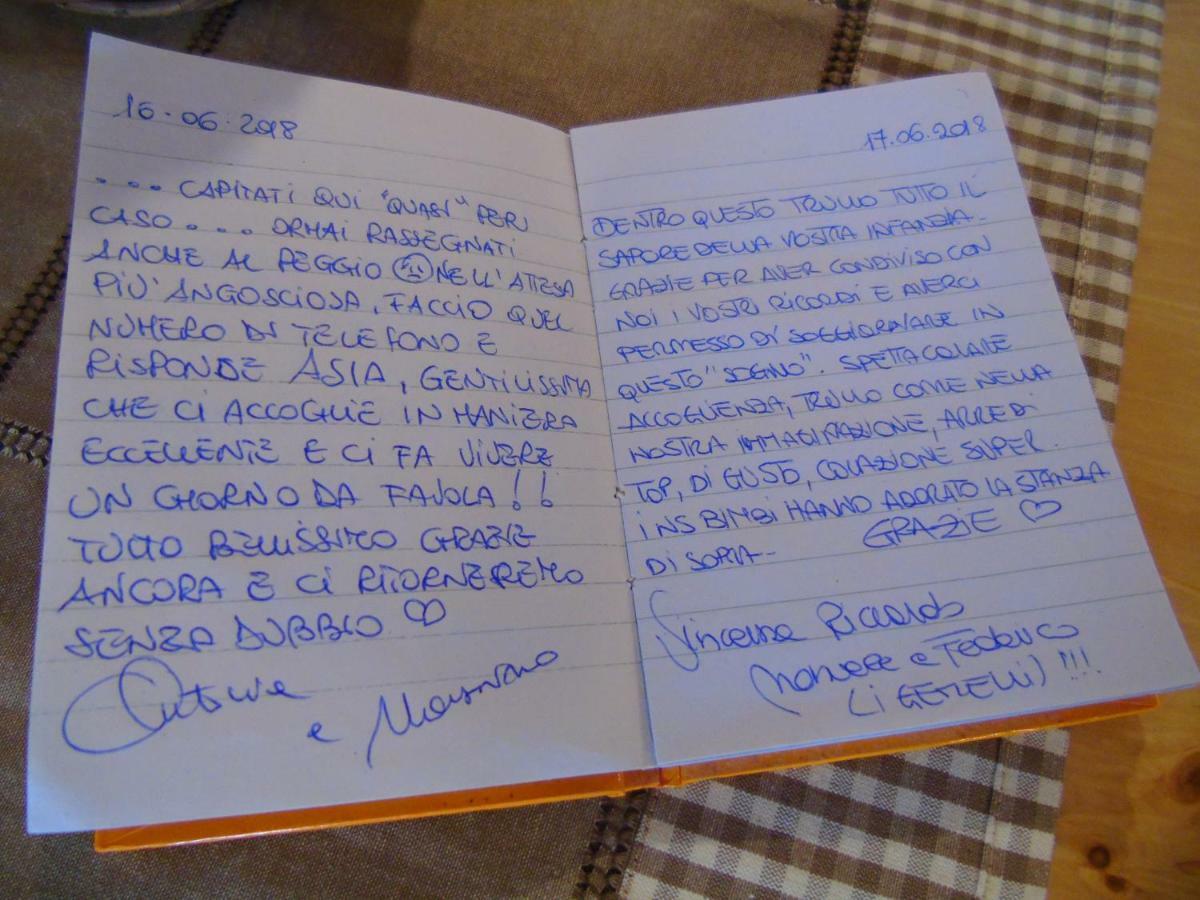 16.06.2018
.... CAPITATI QUI "QUASI" PER
CASO .... ORMAI RASSEGNATI
ANCHE AL PEGGIO NELL'ATTESA
PIÙ ANGOSCIOSA, FACCIO QUEL
NUMERO DI TELEFONO E
RISPONDE ASIA, GENTILISSIMA
CHE CI ACCOGLIE IN MANIERA
ECCELLENTE E CI FA VIVERE
UN GIORNO DA FAVOLA!!
TUTTO BELLISSIMO GRAZIE
ANCORA E CI RITORNEREMO
SENZA DUBBIO ♡
e
17.06.2018
DENTRO QUESTO TRULLO TUTTO IL
SAPORE DELLA VOSTRA INFANZIA.
GRAZIE PER AVER CONDIVISO CON
NOI I VOSTRI RICORDI E AVERCI
PERMESSO DI SOGGIORNARE IN
QUESTO "SOGNO". SPETTACOLARE
ACCOGLIENZA, TRULLO COME NELLA
NOSTRA IMMAGINAZIONE, ARREDI
TOP, DI GUSTO, COLAZIONE SUPER.
I NS BIMBI HANNO ADORATO LA STANZA
DI SOPRA- GRAZIE ♡
Riccardo
e Federico
(i GEMELLI) !!!